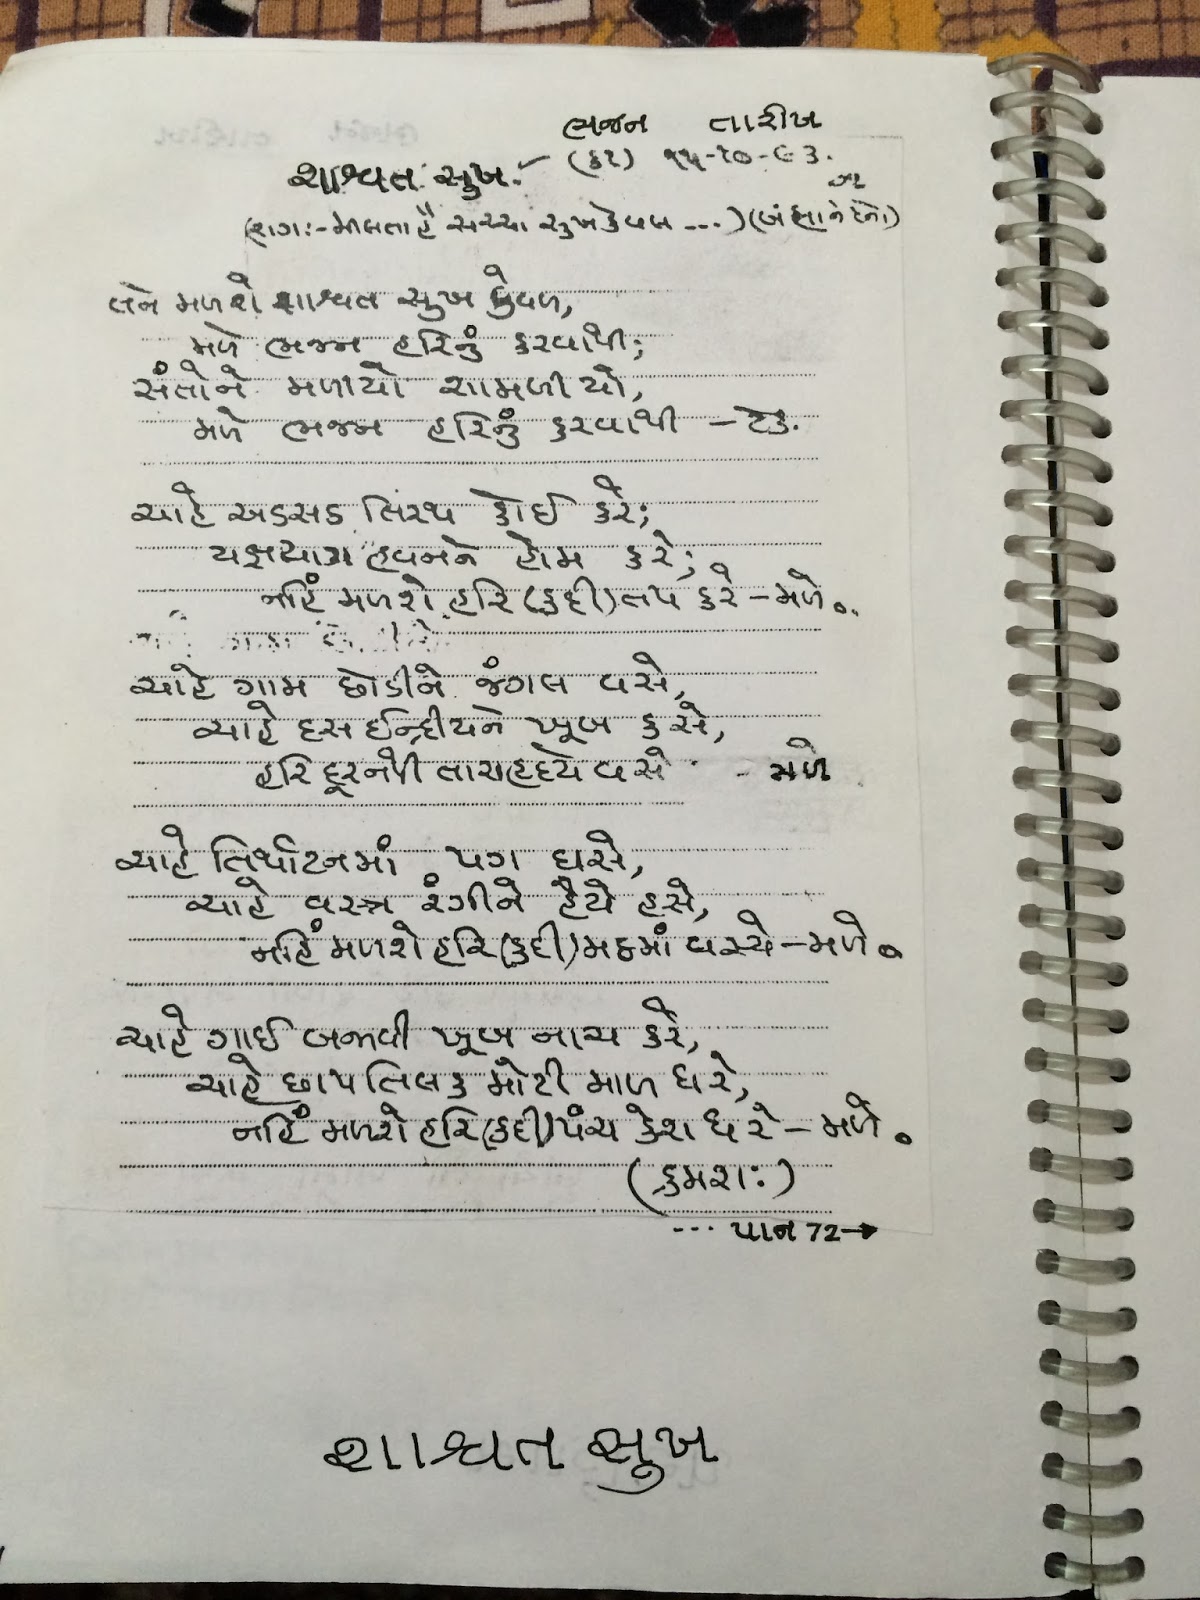 ભજન તારીખ
શાશ્વત સુખ. (૬૨) ૧૫-૧૦-૯૩.
(રાગઃ-મીલતા હૈ સચ્ચા સુખ કેવલ ...)
તને મળશે શાશ્વત સુખ કેવળ,
મળે ભજન હરિનું કરવાથી;
સંતોને મળીયો શામળીયો,
મળે ભજન હરિનું કરવાથી - ટેક.
ચાહે અડસઠ તિરથ કોઈ કરે;
યજ્ઞયાગ હવનને હોમ કરે;
નહિં મળશે હરિ (કદી) તપ કરે - મળે૦..
ચાહે ગામ છોડીને જંગલ વસે,
ચાહે દસ ઈન્દ્રીયને ખૂબ કસે,
હરિ દૂર નથી તારા હૃદયે વસે - મળે
ચાહે તિર્થાટનમાં પગ ઘસે,
ચાહે વસ્ત્ર રંગીને હૈયે હસે,
નહિં મળશે હરિ (કદી) મઠમાં વસ્યે - મળે૦
ચાહે ગાઈ બજાવી ખૂબ નાચ કરે,
ચાહે છાપ તિલક મોટી માળ ધરે,
નહિં મળશે હરિ (કદી) પંચ કેશ ધરે - મળે૦
(ક્રમશઃ)
... પાન 72→
શાશ્વત સુખ